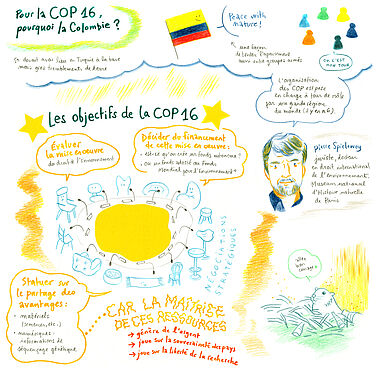 Pour la COP 16,
pourquoi la Colombie ?
Peace with
nature !
ça devait avoir lieu en Turquie à la base
mais gros tremblements de terre
une façon
de tendre l'apaisement
avec groupes armés
OK C'EST
MON TOUR
L'organisation
des COP est prise
en charge à tour de rôle
par une grande région
du monde (il y en a 6)
Les objectifs de la COP 16
Évaluer
la mise en œuvre
du droit à l'Environnement
Décider du financement
de cette mise en œuvre :
est-ce qu'on crée un fonds autonome ?
ou un fonds adossé au Fonds
Mondial pour l'Environnement
NÉGOCIATIONS
STRATÉGIQUES
pierre Spielewoy
juriste,
en droit international
de l'environnement,
Museum national
d'Histoire naturelle
de Paris
Statuer sur
le partage des
avantages :
matériels
(semences, etc.)
numériques :
informations de
séquençage génétique
CAR LA MAÎTRISE
DE CES RESSOURCES
→ génère de l'argent
→ joue sur la souveraineté des pays
→ joue sur la liberté de la recherche
bon
courage !